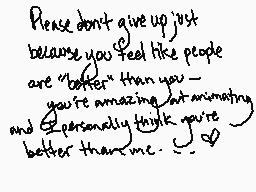 Please don't give up just
because you feel like people
are "better" than you –
you're amazing at animating
and I personally think you're
better than me. :) ♡